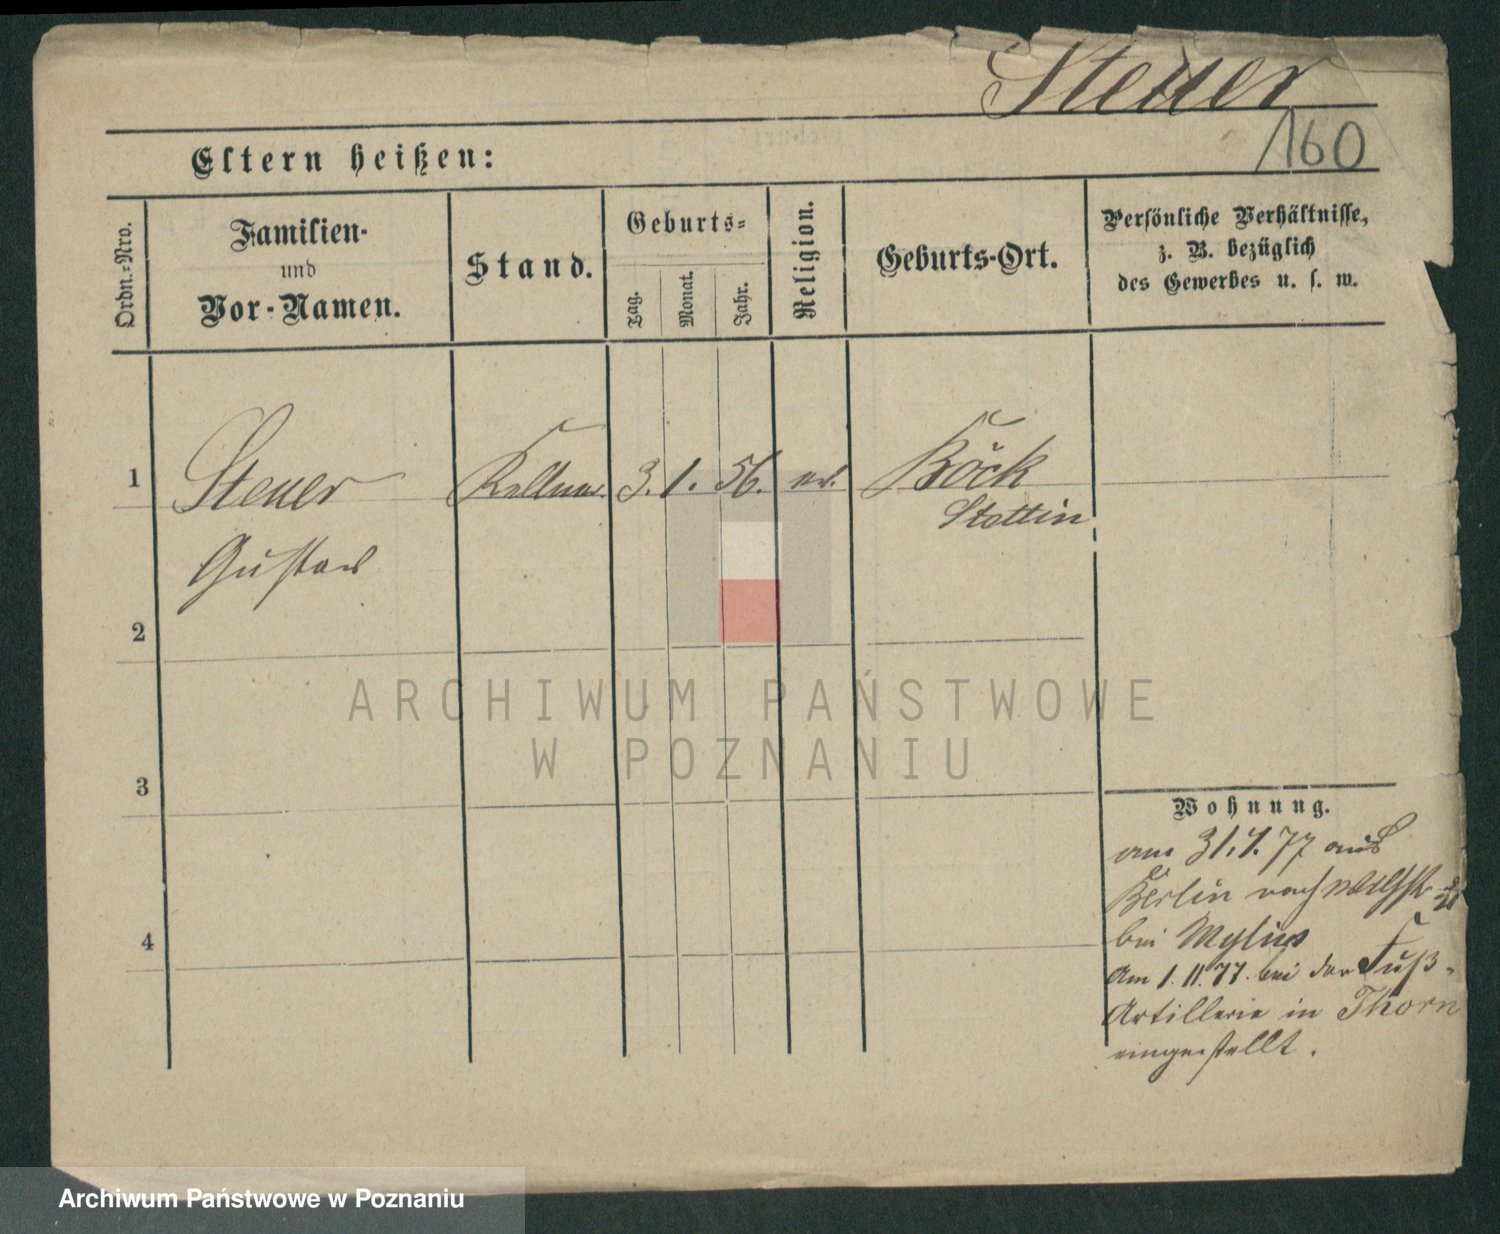 Steuer
160
Eltern heißen:
Ordn.=Nro.
Familien-
und
Vor-Namen.
Stand.
Geburts=
Tag.
Monat.
Jahr.
Religion.
Geburts-Ort.
Persönliche Verhältnisse,
z. B. bezüglich
des Gewerbes u. s. w.
1
Steuer
Gustav
Kellner
3. 1. 56.
ev.
Böck
Stettin
2
3
4
Wohnung.
am 31. 7. 77 aus
Berlin nach
bei Mylius
Am 1. 11. 77. bei der Fuß-
Artillerie in Thorn
eingestellt.
ARCHIWUM PAŃSTWOWE
W POZNANIU
Archiwum Państwowe w Poznaniu